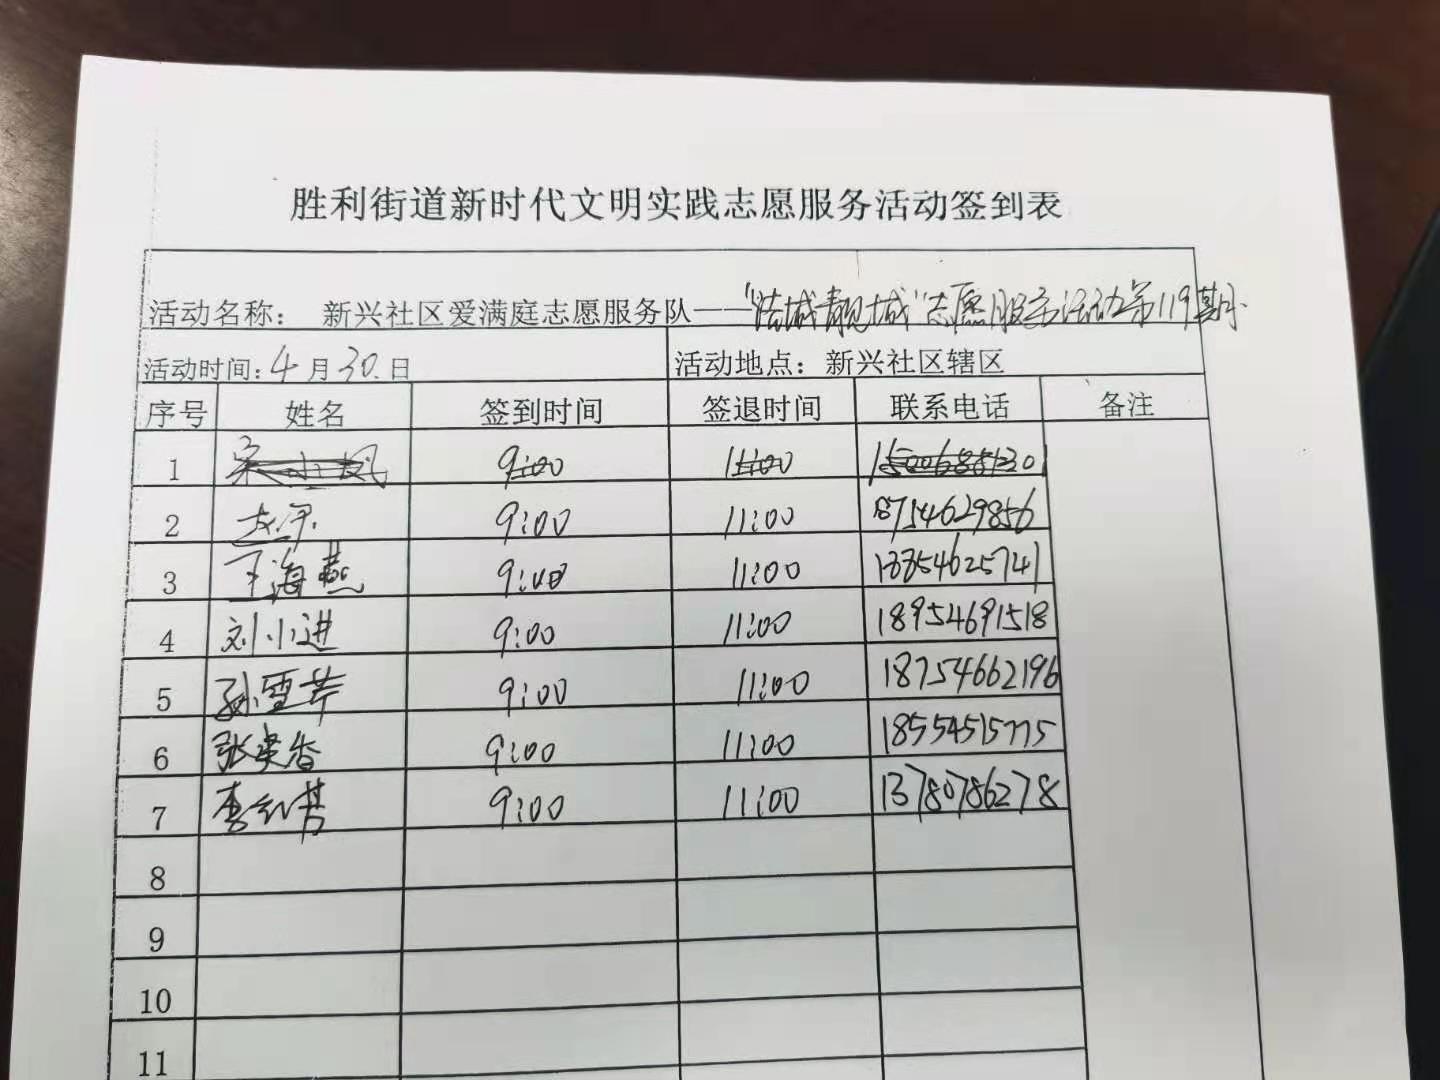 胜利街道新时代文明实践志愿服务活动签到表
活动名称： 新兴社区爱满庭志愿服务队——"洁城靓城"志愿服务活动第119期
活动时间：4月30日 活动地点：新兴社区辖区
序号 姓名 签到时间 签退时间 联系电话 备注
1 宋小凤 9:00 11:00
2 9:00 11:00 18754629856
3 王海燕 9:00 11:00 18854625741
4 刘小进 9:00 11:00 18954691518
5 孙雪芹 9:00 11:00 18754662196
6 张英香 9:00 11:00 18554515775
7 9:00 11:00 13780786278
8
9
10
11